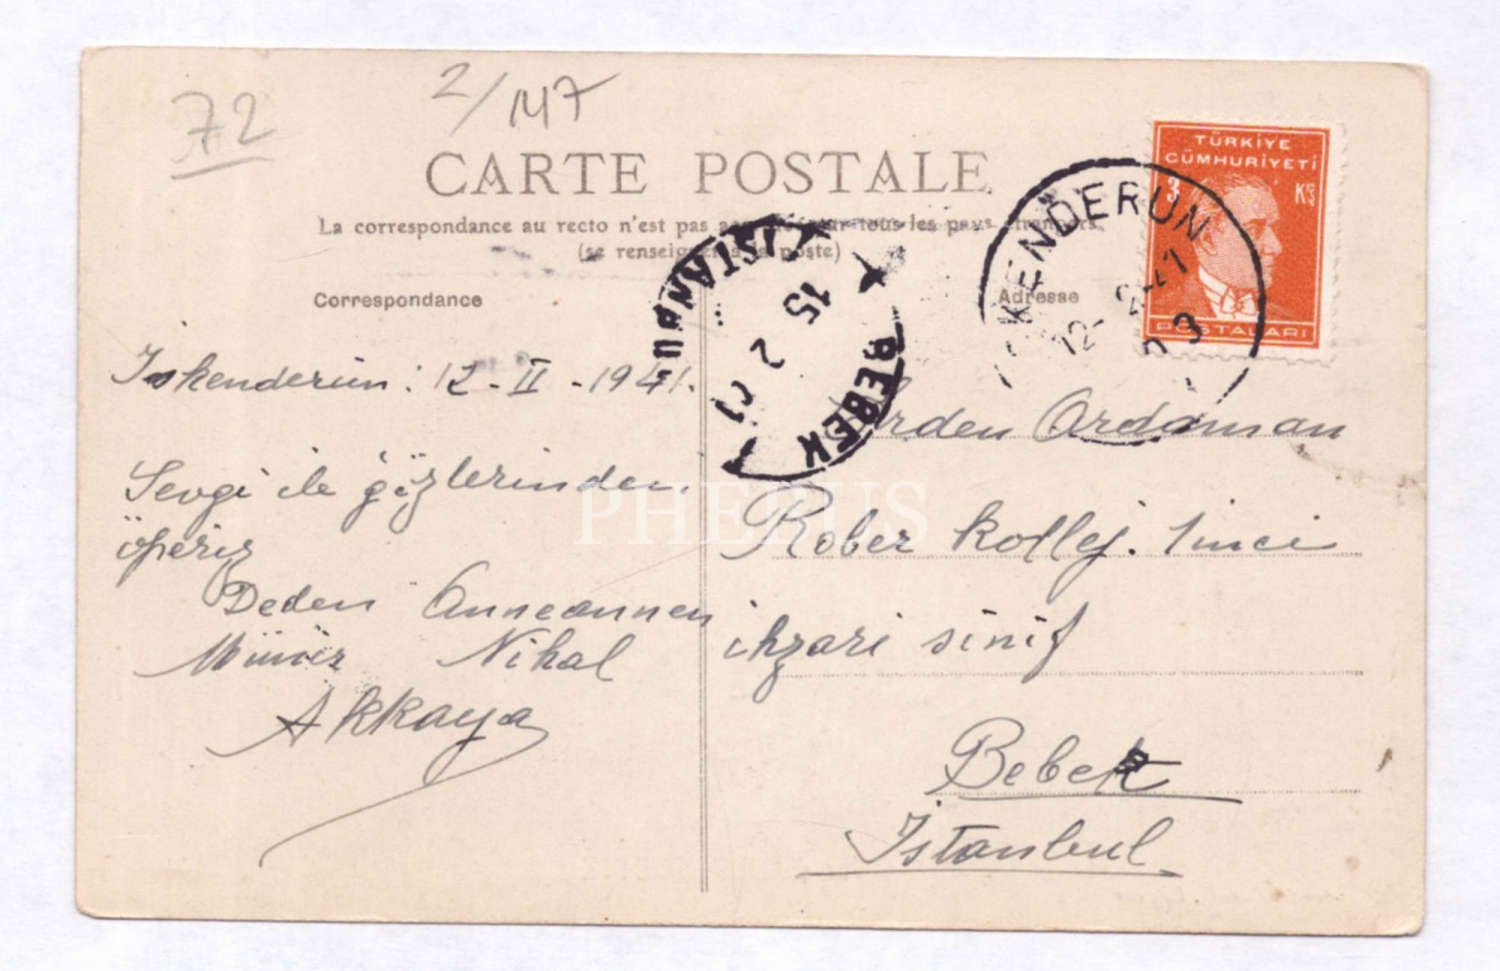 72
2/147
CARTE POSTALE
La correspondance au recto n'est pas pour tous les pays étrangers
(se renseigner à la poste)
Correspondance
Adresse
TÜRKİYE
CÜMHURİYETİ
3 Kş
POSTALARI
KENDERUN
12
İSTANBUL
15 2
BEBEK
İskenderun: 12-II-1941.
Sevgi ile gözlerinden
öperiz
Deden Anneannen
Münir Nihal
Akkaya
Ardaman
Rober Kollej. 1inci
ihzari sinif
Bebek
İstanbul
PHEBUS